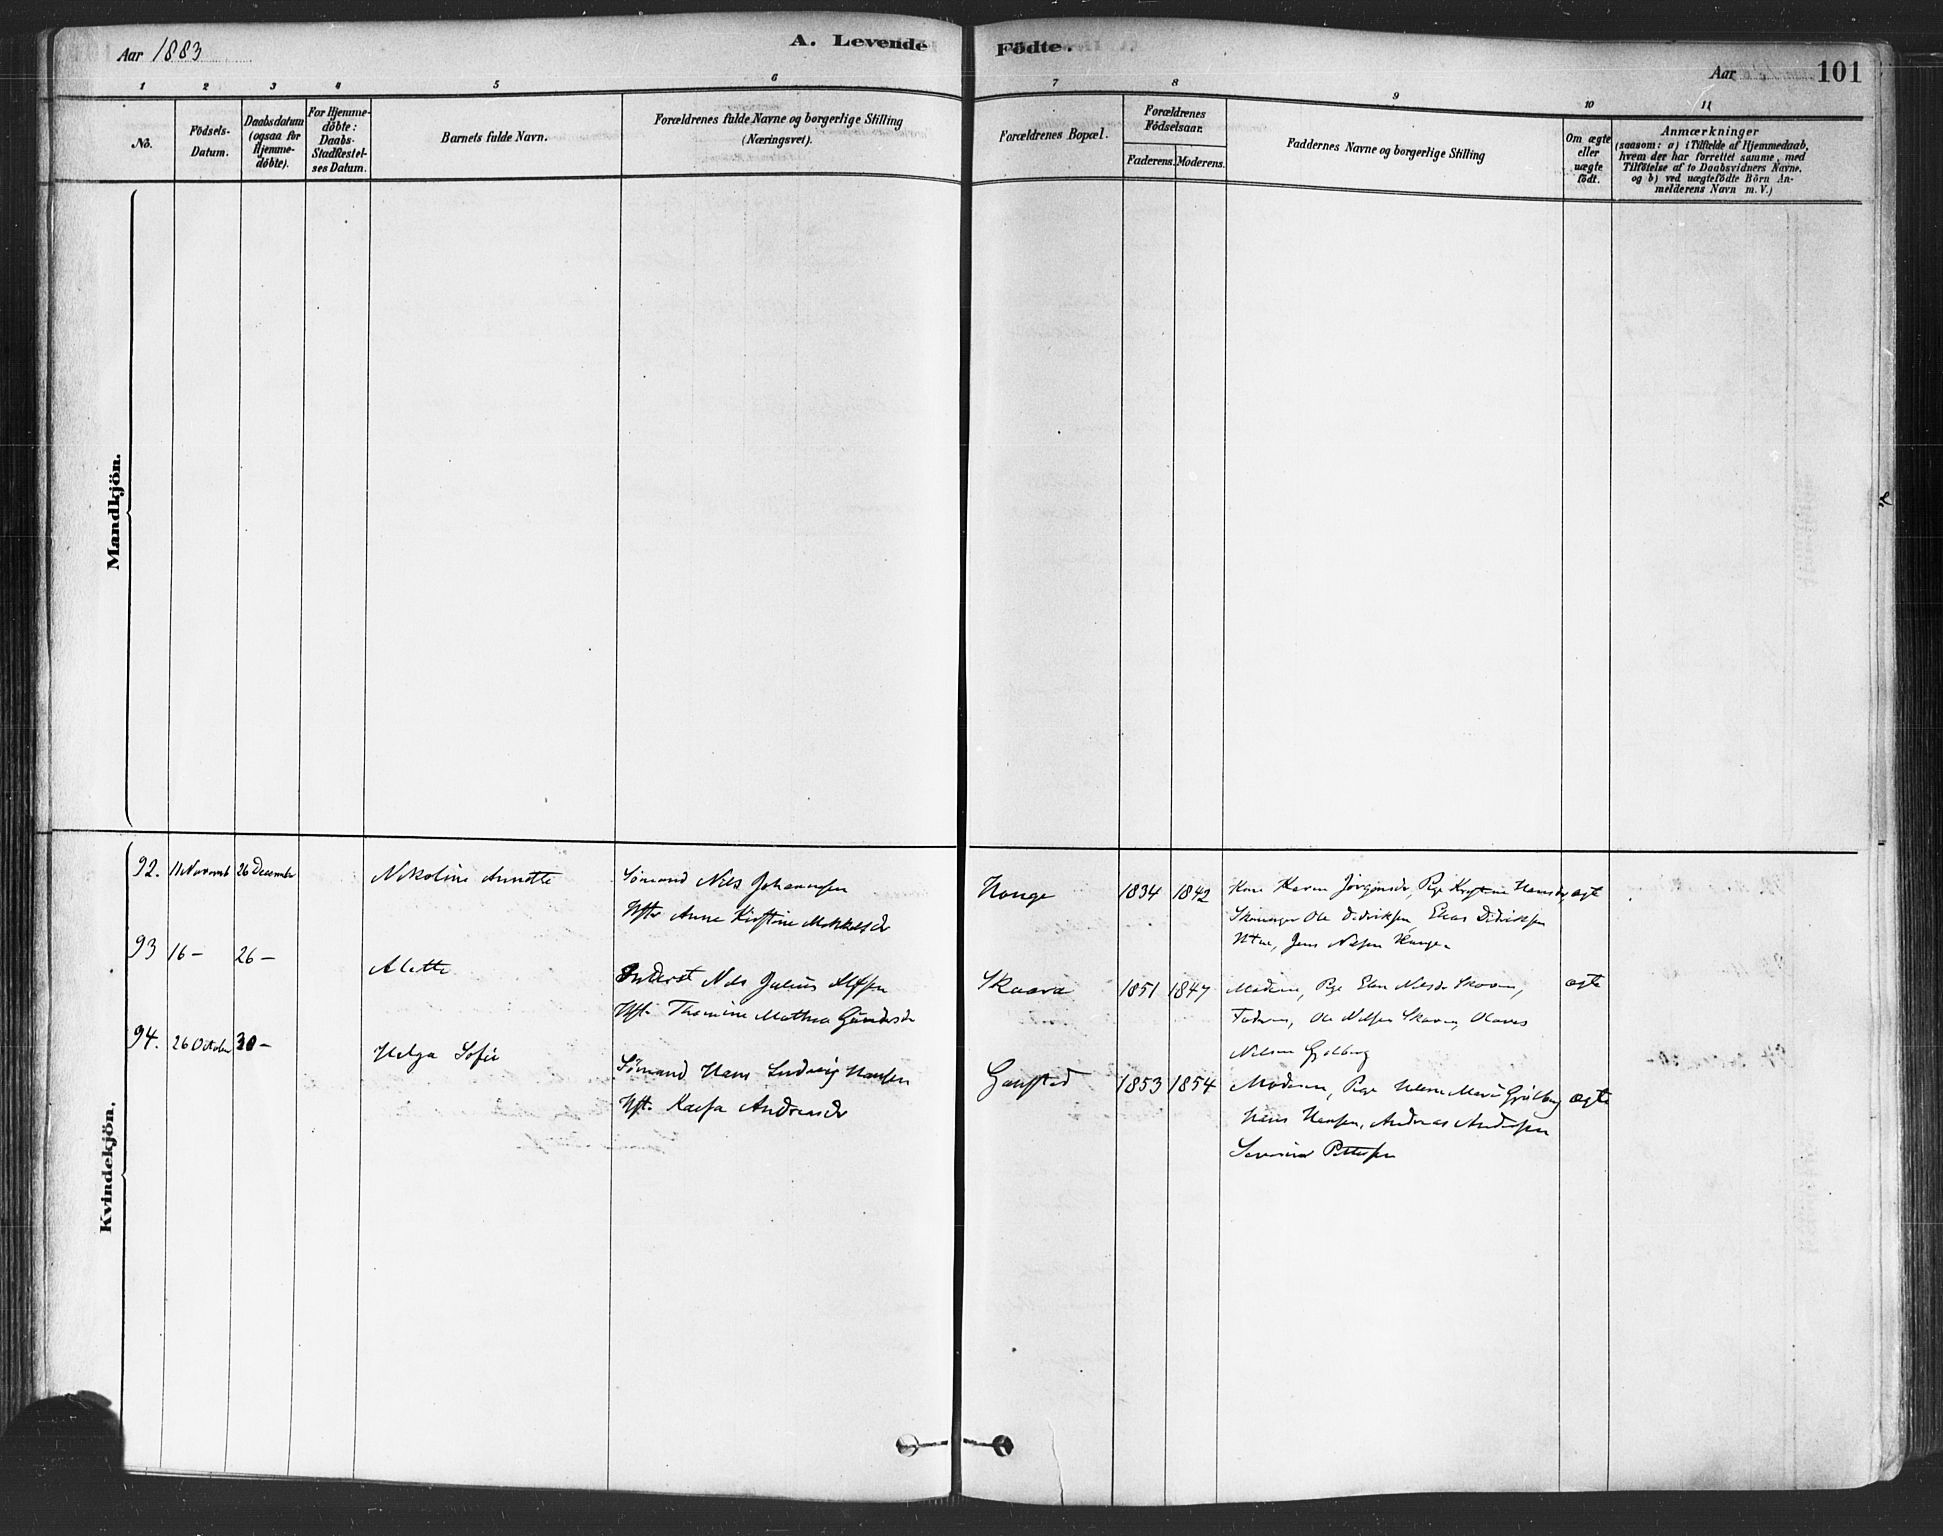 Aar 1883
A. Levende Födte.
Aar 101
1 2 3 4 5 6 7 8 9 10 11
No.
Födsels-
Datum.
Daabsdatum
(ogsaa for
Hjemme-
döbte).
For Hjemme-
döbte:
Daabs-
Stadfæstel-
ses Datum.
Barnets fulde Navn.
Forældrenes fulde Navne og borgerlige Stilling
(Næringsvei).
Forældrenes Bopæl.
Forældrenes
Födselsaar.
Faderens. Moderens.
Faddernes Navne og borgerlige Stilling
Om ægte
eller
uægte
födt.
Anmærkninger
(saasom: a) i Tilfælde af Hjemmedaab,
hvem der har forrettet samme, med
Tilföielse af to Daabsvidners Navne.
og b) ved uægtefödte Börn An-
melderens Navn m. V.)
Mandkjön.
Kvindekjön.
92. 11 Novemb 26 December Nikoline Annette
Sömand Nils Johannesen
Hstr Anne Kirstine Mikkelsdr
Hauge 1834 1842
Karen Jörgensdr, Pige Hansdr, ægte
Ole Didriksen, Elias Didriksen
Jens Nilsen Hauge
93 16 — 26 — Alette
Nils Julius
Hst. Thomine Mathea
Skaara 1851 1847
Moderen, Pige Nilsdr Skaara, ægte
Faderen, Ole Nilsen Skaara, Olaves
Nilsen Gjelberg
94. 26 October 30 — Helga Sofie
Sömand Hans Ludvig Hansen
Hst. Kaisa Andreasdr
1853 1854
Moderen, Pige Marie ægte
Hans Hansen, Andreas Andersen
Pettersen